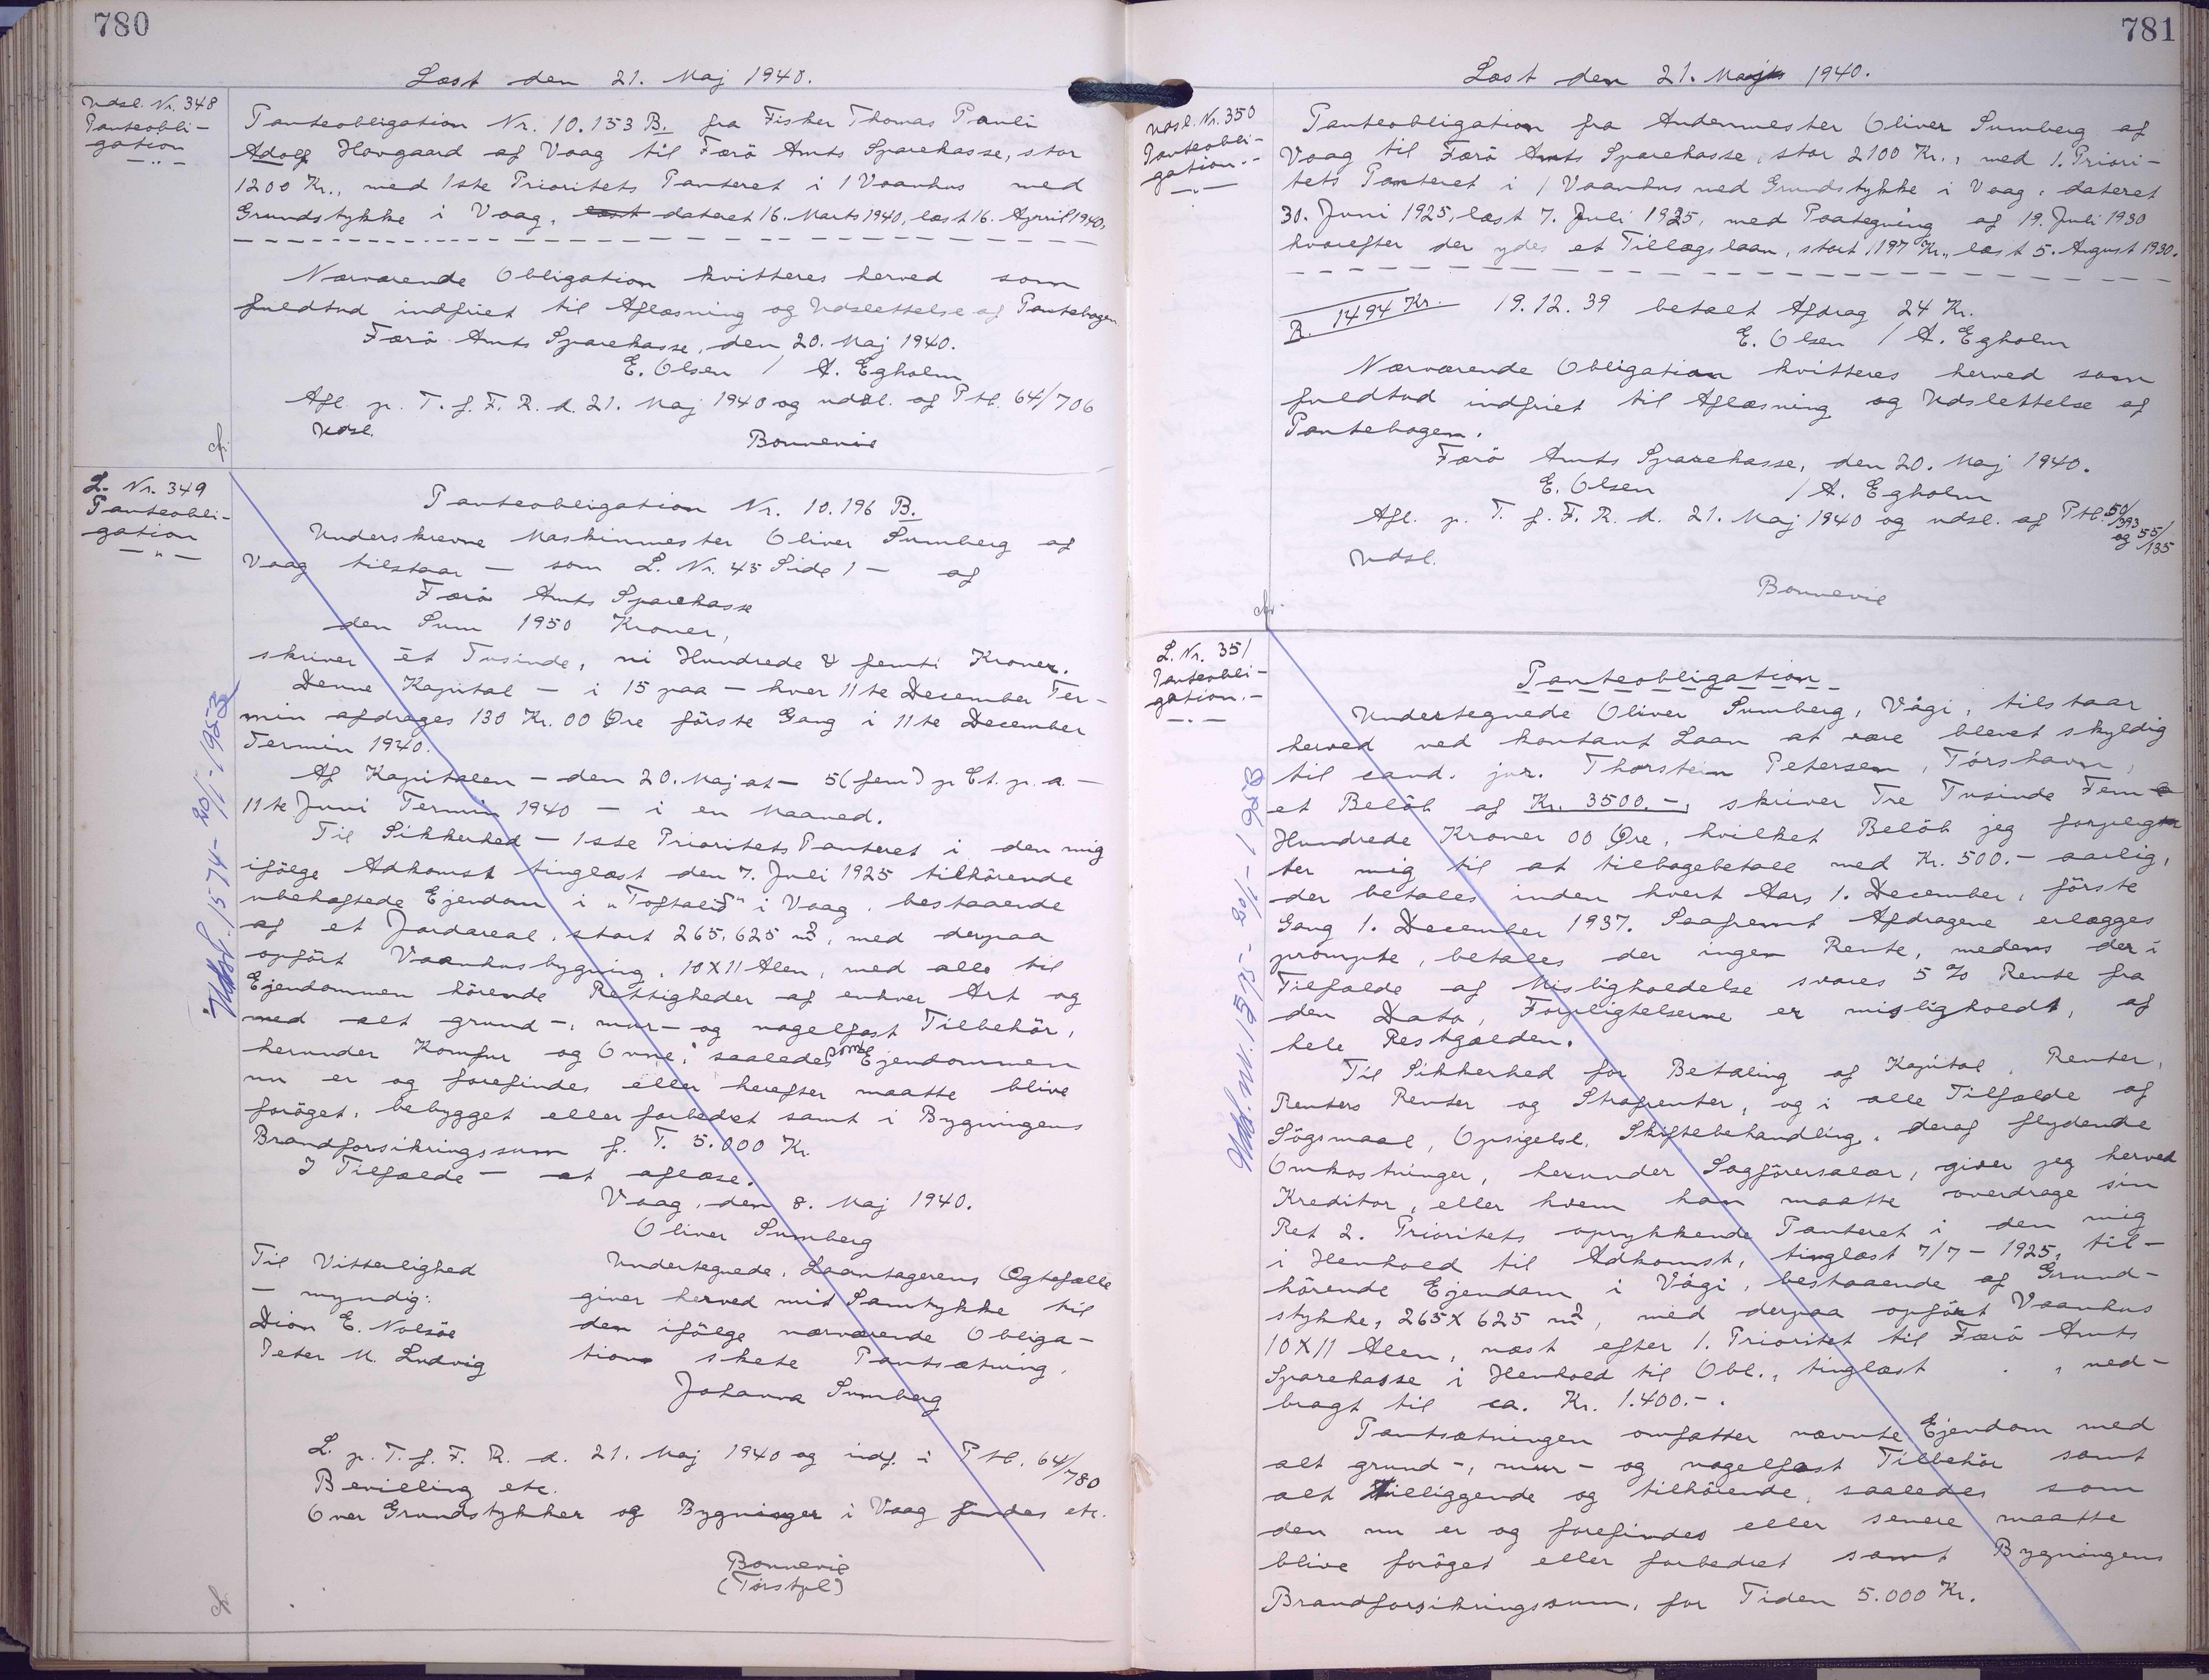 780
Læst den 21. Maj 1940.
Udsl. Nr. 348
Panteobli-
gation
— " —
Panteobligation Nr. 10.153 B. fra Fisker Thomas Pauli
Adolf Hovgaard af Vaag til Færö Amts Sparekasse, stor
1200 Kr., med 1ste Prioritets Panteret i 1 Vaanhus med
Grundstykke i Vaag, læst dateret 16. Marts 1940, læst 16. Aprril 1940,
Nærværende Obligation kvitteres herved som
fuldtud indfriet til Aflæsning og Udslettelse af Pantebogen
Færö Amts Sparekasse, den 20. Maj 1940.
E. Olsen / A. Egholm
Afl. p. T. f. F. R. d. 21. Maj 1940 og udsl. af Ptb. 64/706
Udsl.
Bonnevie
L. Nr. 349
Panteobli-
gation
— " —
Panteobligation Nr. 10.196 B.
Underskrevne Maskinmester Oliver Sumberg af
Vaag tilstaar — som L. Nr. 45 Side 1 — af
Færö Amts Sparekasse
den Sum 1950 Kroner,
skriver èt Tusinde, ni Hundrede & femti Kroner.
Denne Kapital — i 15 paa — hver 11te December Ter-
min afdrages 130 Kr. 00 Øre förste Gang i 11te December
Termin 1940.
Af Kapitalen — den 20. Maj at — 5 (fem) p Ct. p. a. —
11te Juni Termin 1940 — i en Maaned.
Til Sikkerhed — 1ste Prioritets Panteret i den mig
ifölge Adkomst tinglæst den 7. Juli 1925 tilhörende
ubehæftede Ejendom i "Toftalið" i Vaag, bestaaende
af et Jordareal, stort 265,625 m2, med derpaa
opfört Vaanhusbygning, 10 X 11 Alen, med alle til
Ejendommen hörende Rettigheder af enhver Art og
med alt grund-, mur- og nagelfast Tilbehör,
herunder Komfur og Ovne, saaledes som Ejendommen
nu er og forefindes eller herefter maatte blive
foröget, bebygget eller forbedret samt i Bygningens
Brandforsikringssum f. T. 5.000 Kr.
I Tilfælde — at aflæse.
Vaag, den 8. Maj 1940.
Oliver Sumberg
Til Vitterlighed
— myndig:
Dion E. Nolsöe
Peter M. Ludvig
Undertegnede, Laantagerens Ægtefælle
giver herved mit Samtykke til
den ifölge nærværende Obliga-
tion skete Pantsætning,
Johanna Sumberg
L. p. T. f. F. R. d. 21. Maj 1940 og indf. i Ptb. 64/780
Bevilling etc.
Over Grundstykker og Bygninger i Vaag findes etc.
Bonnevie
(Torstpl)
Udsl. 1574 - 20/1-1953
781
Læst den 21. Maj 1940.
Udsl. Nr. 350
Panteobli-
gation. -
— " —
Panteobligation fra Andenmester Oliver Sumberg af
Vaag til Færö Amts Sparekasse, stor 2100 Kr., med 1. Priori-
tets Panteret i 1 Vaanhus med Grundstykke i Vaag, dateret
30. Juni 1925, læst 7. Juli 1925, med Paategning af 19. Juli 1930
hvorefter der ydes et Tillægslaan, stort 1197 Kr., læst 5. August 1930.
R. 1494 Kr. 19.12.39 betalt Afdrag 24 Kr.
E. Olsen / A. Egholm
Nærværende Obligation kvitteres herved som
fuldtud indfriet til Aflæsning og Udslettelse af
Pantebogen.
Færö Amts Sparekasse, den 20. Maj 1940.
E. Olsen / A. Egholm
Afl. p. T. f. F. R. d. 21. Maj 1940 og udsl. af Ptb. 50/393
og 55/135
Udsl.
Bonnevie
L. Nr. 351
Panteobli-
gation. -
— " —
Panteobligation
Undertegnede Oliver Sumberg, Vági, tilstaar
herved ved kontant Laan at være blevet skyldig
til cand. jur. Thorstein Petersen, Tórshavn,
et Belöb af Kr. 3500.-, skriver Tre Tusinde Fem
Hundrede Kroner 00 Øre, hvilket Belöb jeg forpligte
ter mig til at tilbagebetale med Kr. 500.- aarlig,
der betales inden hvert Aars 1. December, förste
Gang 1. December 1937. Saafremt Afdragene erlægges
prompte, betales der ingen Rente, medens der i
Tilfælde af Misligholdelse svares 5 % Rente fra
den Dato, Forpligtelserne er misligholdt, af
hele Restgælden.
Til Sikkerhed for Betaling af Kapital, Renter,
Renters Renter og Strafrenter, og i alle Tilfælde af
Sögsmaal, Opsigelse, Skiftebehandling, deraf flydende
Omkostninger, herunder Sagförersalær, giver jeg herved
Kreditor, eller hvem han maatte overdrage sin
Ret 2. Prioritets oprykkende Panteret i den mig
i Henhold til Adkomst, tinglæst 7/7 - 1925, til-
hörende Ejendom i Vági, bestaaende af Grund-
stykke, 265X625 m2, med derpaa opfört Vaanhus
10X11 Alen, næst efter 1. Prioritet til Færö Amts
Sparekasse i Henhold til Obl., tinglæst . , ned-
bragt til ca. Kr. 1.400.-.
Pantsætningen omfatter nævnte Ejendom med
alt grund-, mur- og nagelfast Tilbehör samt
alt tilliggende og tilhörende, saaledes som
den nu er og forefindes eller senere maatte
blive foröget eller forbedret samt Bygningens
Brandforsikringssum, for Tiden 5.000 Kr.
Udsl. nr. 1575 - 20/1-1953